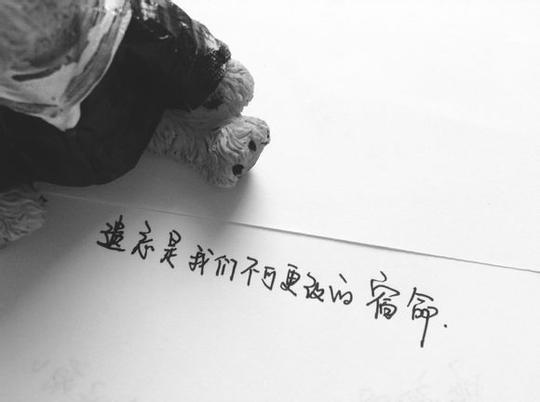 遗忘是我们不可更改的宿命.